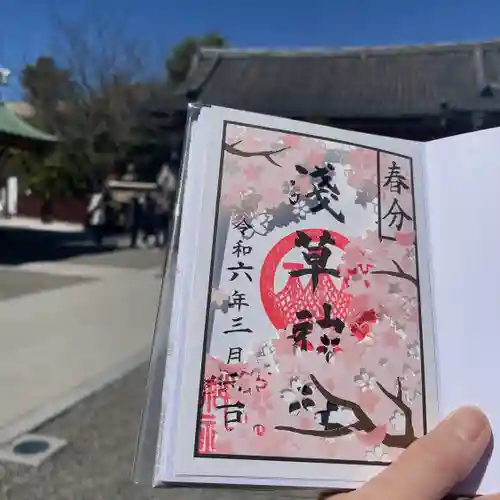 春分
浅草神社
令和六年三月